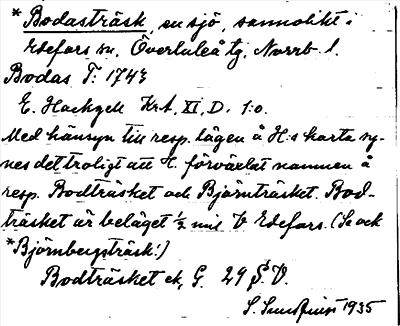 * Bodasträsk, en sjö, sannolikt i
Edefors sn, Överluleå tg, Norrb. l.
Bodas T: 1743
E. Hackzell Krt. XI, D. 1:0.
Med hänsyn till resp. lägen å H:s karta sy-
nes det troligt att H. förväxlat namnen å
resp. Bodträsket och Björnträsket. Bod-
träsket är beläget ½ mil V Edefors. (Se ock
*Björnbergsträsk!)
Bodträsket ek, G. 29 S.V.
S. 1935